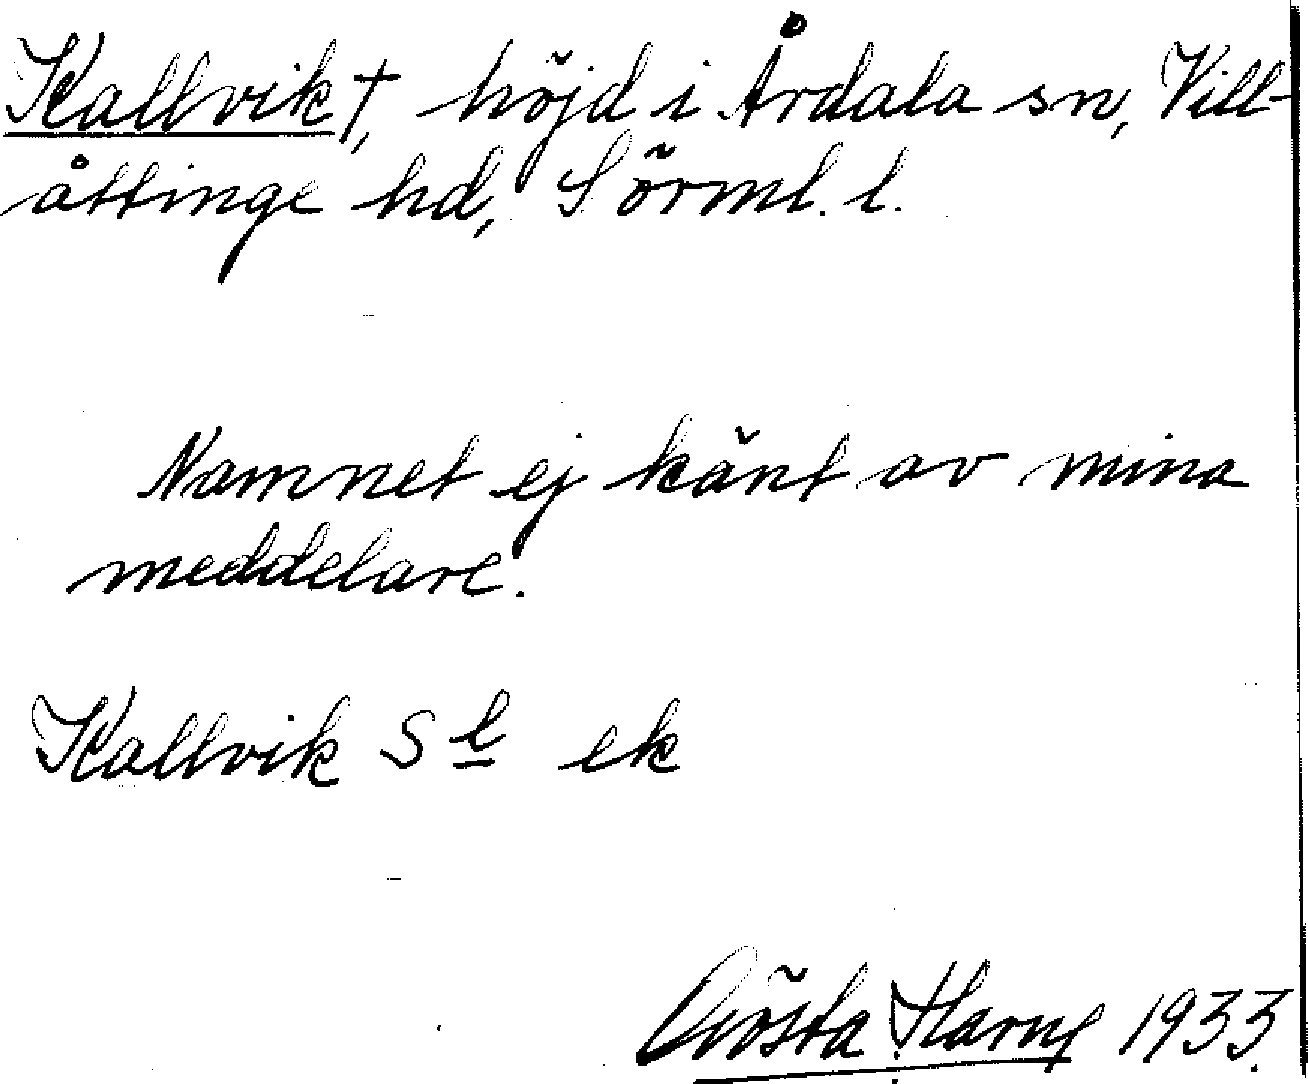 Kallvik†, höjd i Årdala sn, Vill-
åttinge hd, Sörml. l.
Namnet ej känt av mina
meddelare.
Kallvik S l ek
Gösta 1933.